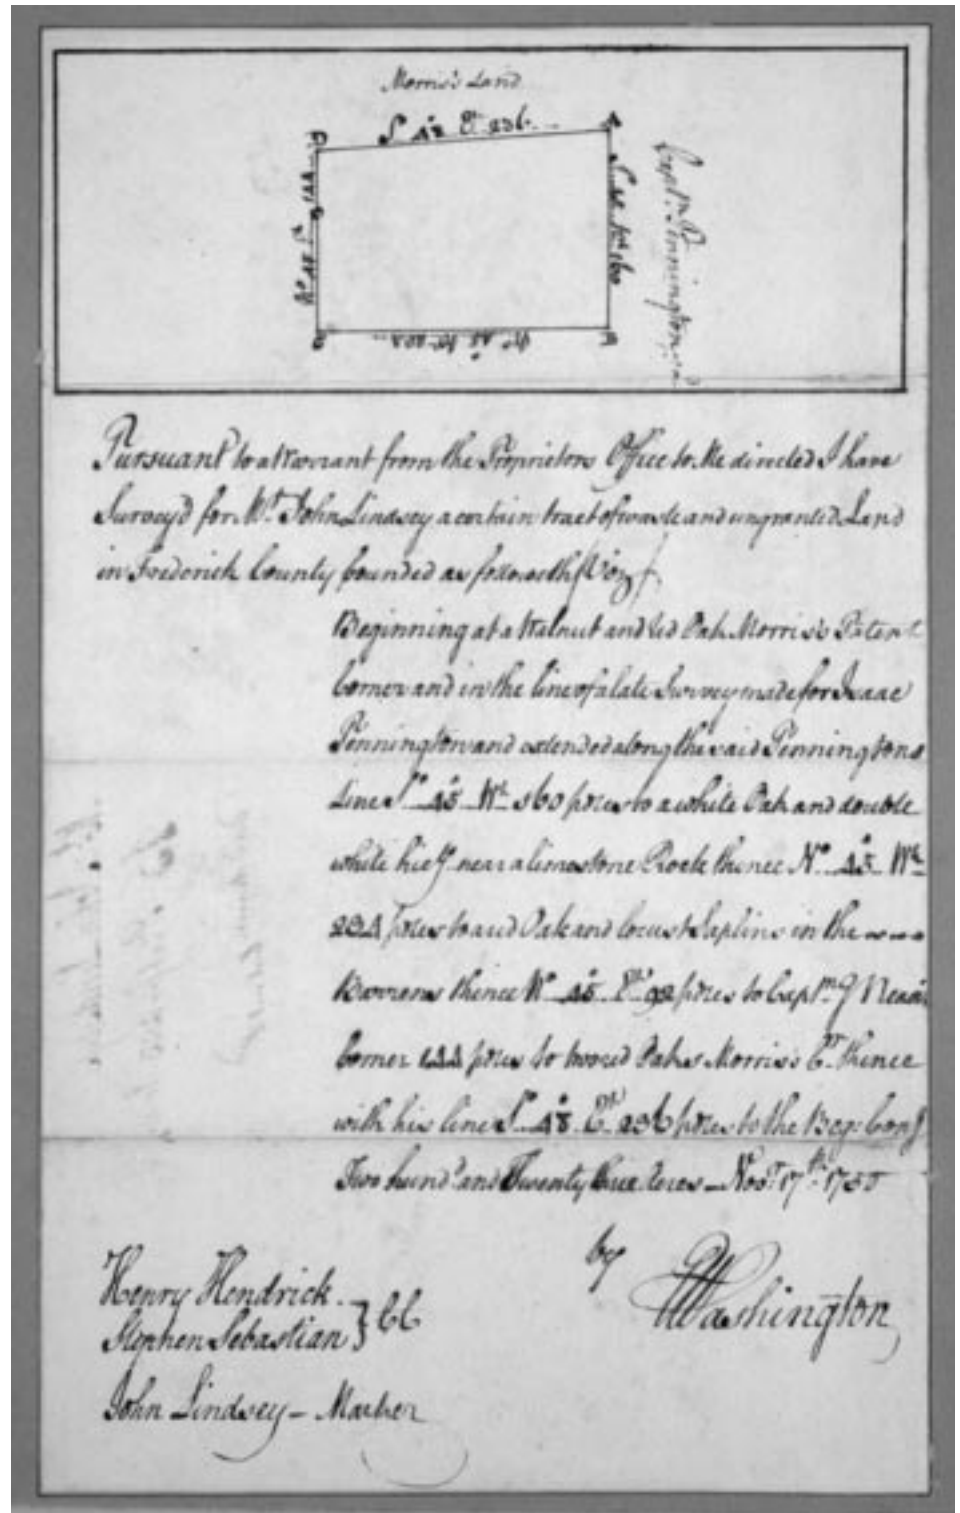 Morris's Land
S 48 Et 236
Capt. Pennington's
So 45 Wt 160
No 45 Wt
No 45 Et 144
Pursuant to a Warrant from the Proprietors Office to Me directed I have
Survey'd for Mr. John Lindsey a certain tract of waste and ungranted Land
in Frederick County bounded as followeth Viz
Beginning at a Walnut and Red Oak Morris's Patent
Corner and in the line of a late Survey made for Isaac
Pennington and extended along the said Penningtons
Line So 45 Wt 160 poles to a white Oak and double
white near a limestone Rock thence No 45 Wt
234 poles to a red Oak and locust Saplins in the
Barrens thence No 45 Et 92 poles to Captn
Corner 144 poles to two red Oaks Morris's Cr. thence
with his line S 48 Et 236 poles to the Beg: Cong
Two hund. and Twenty Acres - Novr 17th 1750
by
GWashington
Henry Hendrick
Stephen Sebastian } CC
John Lindsey - Marker